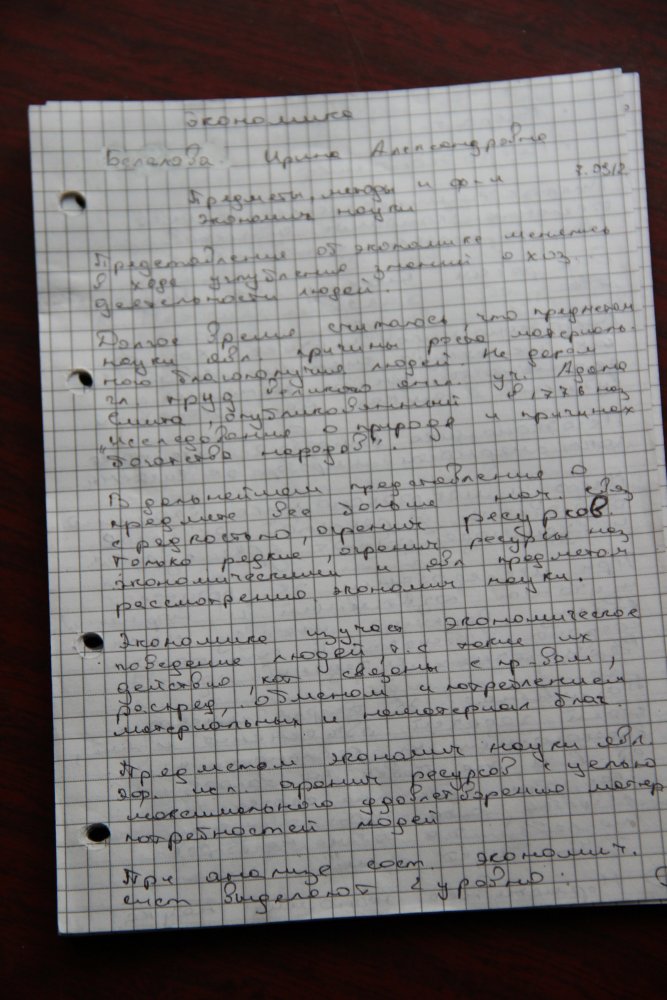 Экономика
Беланова Ирина Александровна
7.09.12
Предметы, методы и ф-и
экономич науки
Представление об экономике менялись
в ходе углубления знаний о хоз.
деятельности людей.
Долгое время считалось, что предметом
науки явл причины роста материаль-
ного благополучия людей. Не даром
гл труд великого англ. уч. Адама
Смита, опубликованный в 1776 наз
"исследование о природе и причинах
богатства народов".
В дальнейшем представление о
предмете все больше нач. связ
с редкостью, огранич ресурсов
Только редкие, огранич ресурсы наз
экономическими и явл предметом
рассмотрения экономич науки.
Экономика изучает экономическое
поведение людей, т.е такие их
действия, кот связаны с пр-вом,
распред, обменом и потреблением
материальных и нематериал благ.
Предметом экономич науки явл
эф. исп. огранич ресурсов с целью
максимального удовлетворения матер
потребностей людей
При анализе сост. экономич.
сист выделяют 2 уровня: